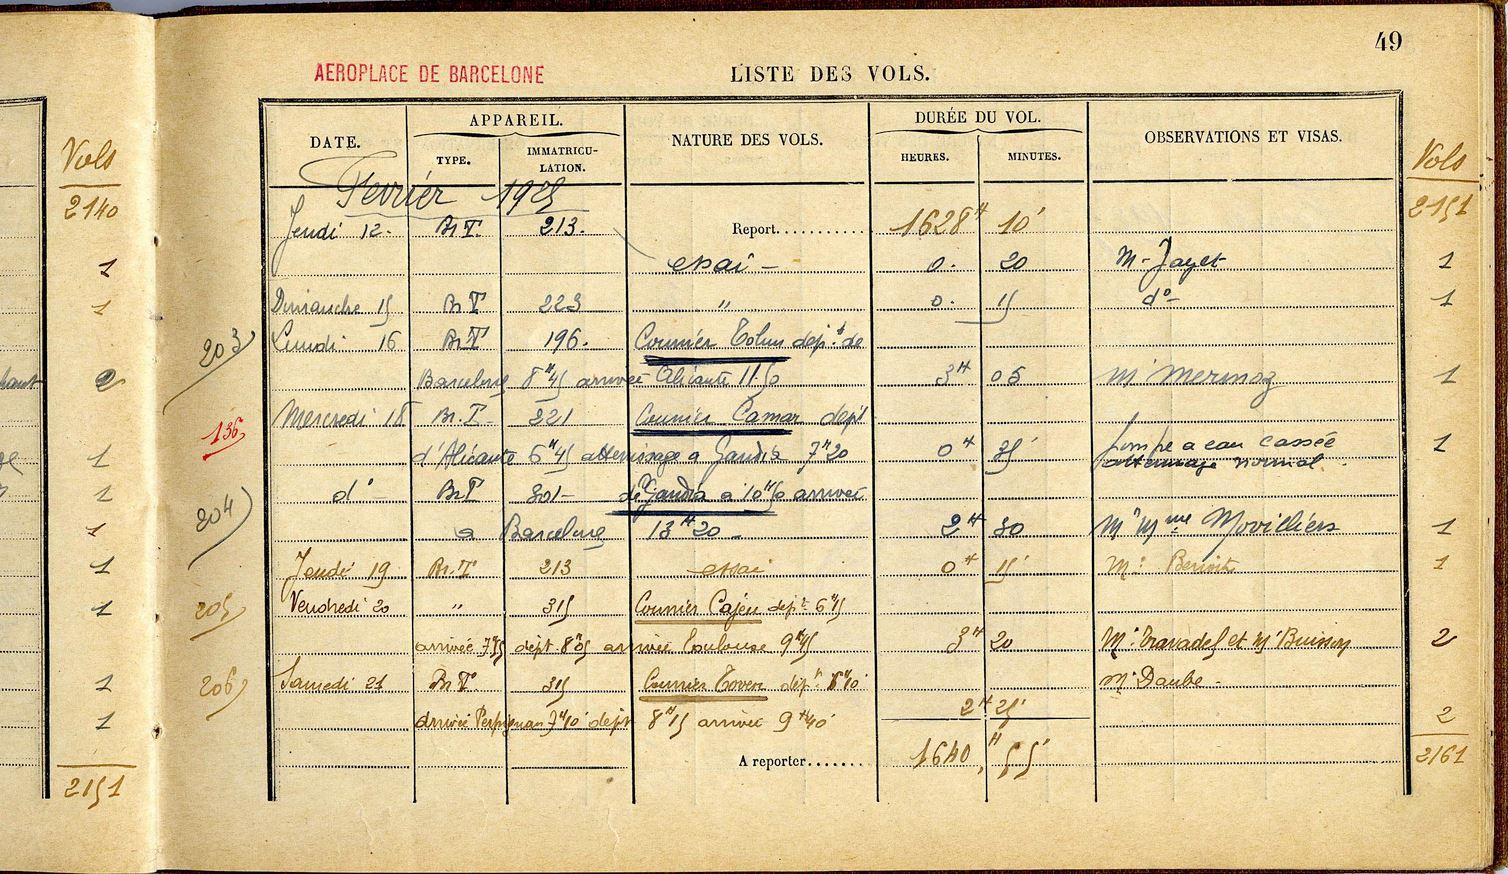 49
AEROPLACE DE BARCELONE
LISTE DES VOLS.
DATE.
APPAREIL.
TYPE.
IMMATRICU-
LATION.
NATURE DES VOLS.
DURÉE DU VOL.
HEURES.
MINUTES.
OBSERVATIONS ET VISAS.
Vols
2140
1
1
2
1
1
1
1
1
1
1
2151
Vols
2151
Fevrier 1925
Jeudi 12. Br.T. 213. Report........... 1628H 10'
essai - 0. 20 M. Jayet 1
Dimanche 15 Br.T 223 " 0. 15 do- 1
203 Lundi 16 Br.T 196. Courrier Tolus dép.t de
Barcelone 8H45 arrivée Alicante 11.50 3H 05 M Mermoz 1
136 Mercredi 18 Br.T 221 Courrier Camar dépt
d'Alicante 6H45 atterrissage a Gandia 7H20 0H 35' pompe a eau cassée 1
atterrissage normal.
204 do Br.T 301- de Gandia a 10H50 arrivée
a Barcelone 13H20- 2H 30 Mr Mme Movilliers 1
Jeudi 19 Br.T 213 essai 0H 15' Mr 1
205 Vendredi 20 " 315 Courrier Cajeu dépt 6H15
arrivée 7H55 dépt 8H05 arrivée Toulouse 9H45 3H 20 Mr Travadel et Mr Buisson 2
206 Samedi 21 Br.T 315 Courrier Toven dépt 6H10 Mr Daube-
arrivée Perpignan 7H10' dépt 8H15 arrivée 9H40' 2H 25' 2
A reporter....... 1640H 55' 2161